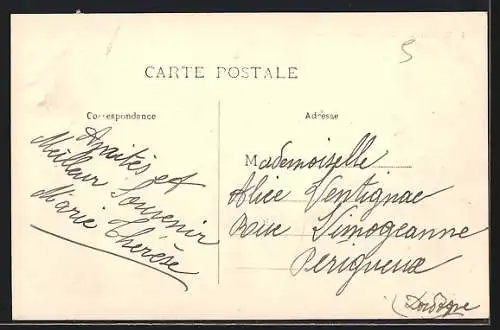 5
CARTE POSTALE
Correspondance
Adresse
Amitiés et
Meilleur Souvenir
Marie Thérèse
Mademoiselle
Alice Ventignac
Rue Limogeanne
Perigueux
(Dordogne